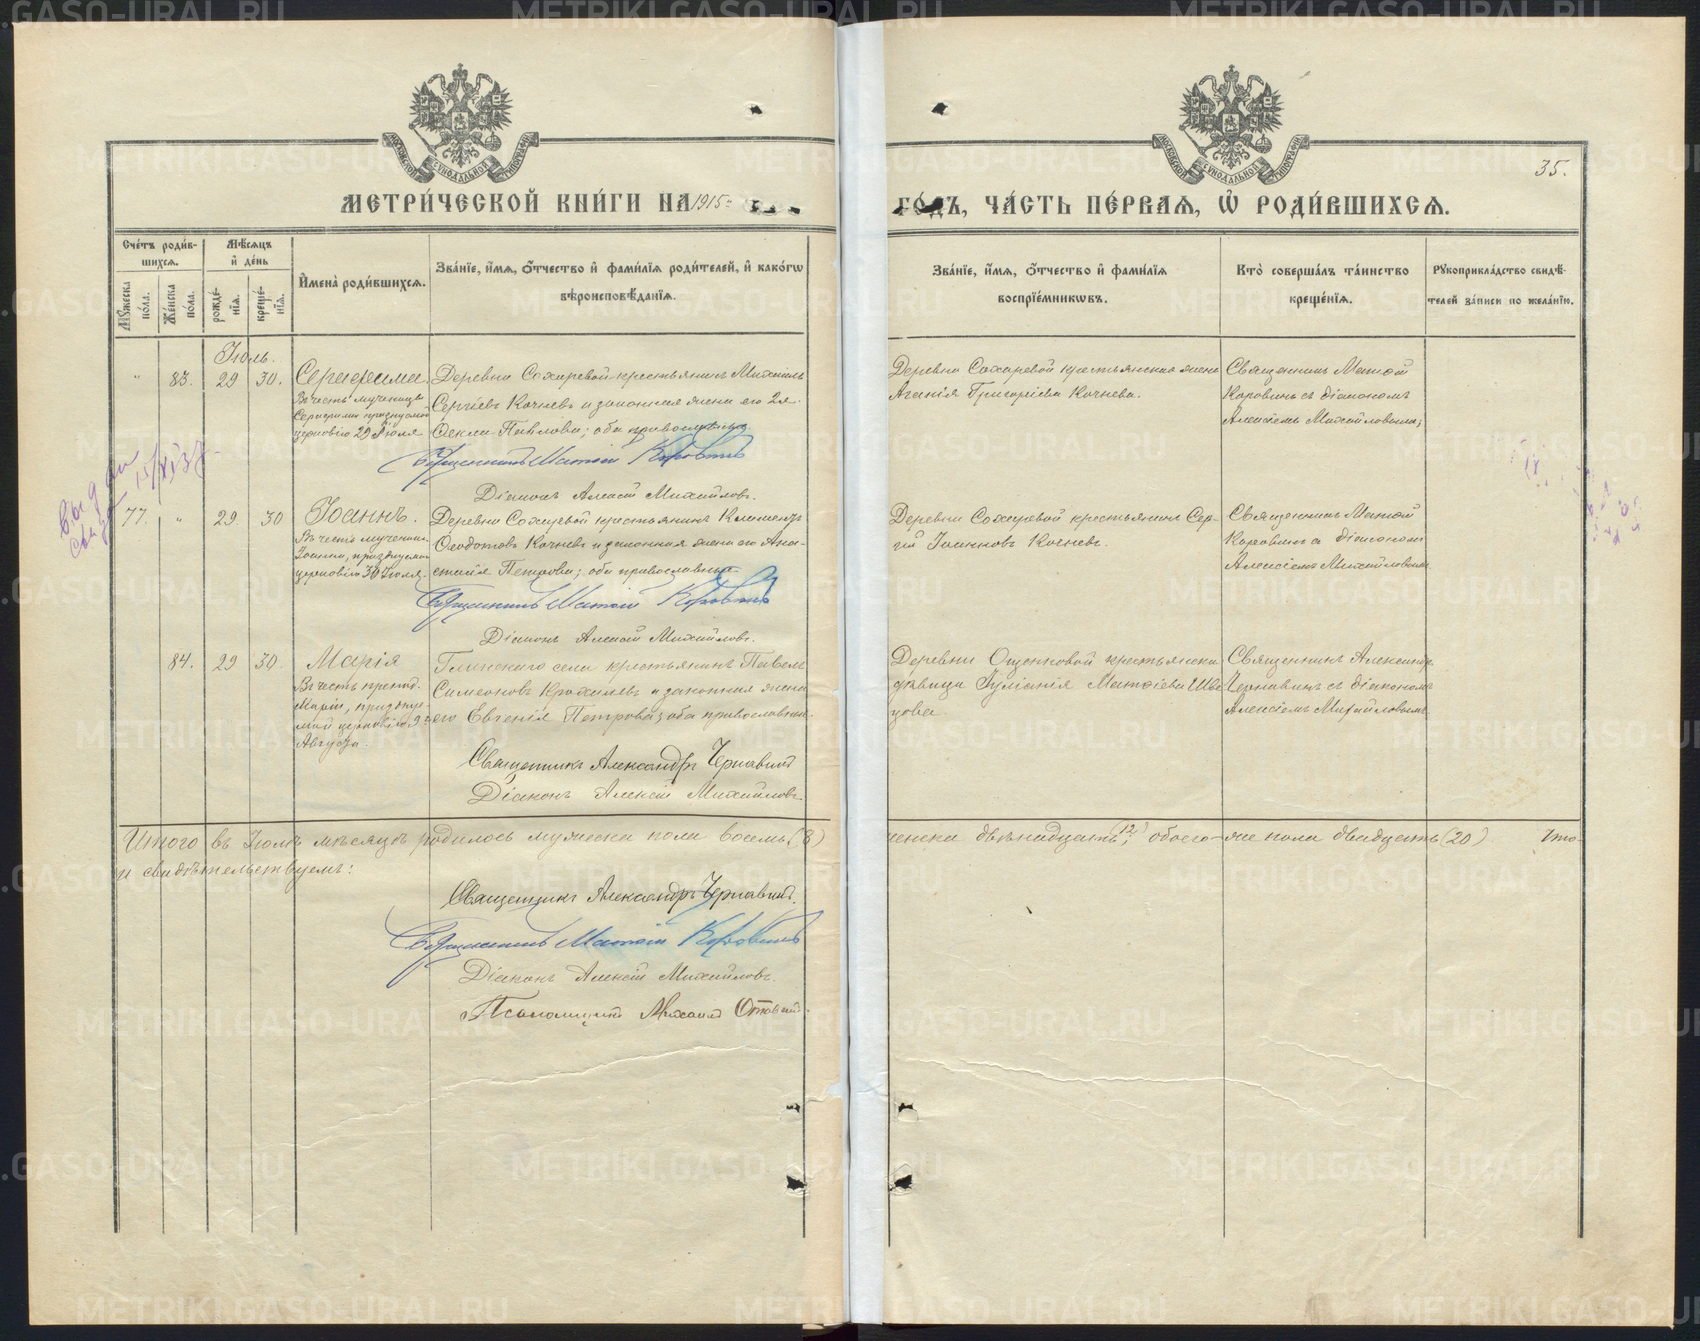 35.
МЕТРИ́ЧЕСКОЙ КНИ́ГИ НА 1915
ГО́ДЪ, ЧА́СТЬ ПЕ́РВАЯ, Ѡ҆ РОДИ́ВШИХСЯ.
Сче́тъ роди́в-
шихся.
Мѣ́сяцъ
и҆ де́нь
Му́жеска по́ла.
Же́нска по́ла.
рожде́нїя.
креще́нїя.
И҆мена̀ роди́вшихся.
Зва́нїе, и҆́мя, ѻ҆́тчество и҆ фами́лїя роди́телей, и҆ како́гѡ
вѣроисповѣ́данїя.
Зва́нїе, и҆́мя, ѻ҆́тчество и҆ фами́лїя
воспрїе́мникѡвъ.
Кто̀ соверша́лъ та́инство
креще́нїя.
Рꙋкоприкла́дство свидѣ́-
телей за́писи по жела́нїю.
Іюль.
" 83. 29 30. Серафима
Въ честь мученицы
Серафимы празднуемой
церковію 29 Іюля
Деревни Сохаревой крестьянинъ Михаилъ
Сергіевъ Кочневъ и законная жена его 2я
Ѳекла Павлова; оба православные
Священникъ Матѳій Коровинъ
Діаконъ Алексій Михайловъ.
Деревни Сохаревой крестьянская жена
Агапія Григоріева Кочнева.
Священникъ Матѳій
Коровинъ съ діакономъ
Алексіемъ Михайловымъ
выдан
15/XI 37
77. " 29 30 Іоаннъ.
Въ честь мученика
Іоанна, празднуемаго
церковію 30 Іюля.
Деревни Сохаревой крестьянинъ Климентъ
Ѳеодотовъ Кочневъ и законная жена его Ана-
стасія Петрова; оба православные
Священникъ Матѳій Коровинъ
Діаконъ Алексій Михайловъ.
Деревни Сохаревой крестьянинъ Сер-
гій Іоанновъ Кочневъ.
Священникъ Матѳій
Коровинъ съ діакономъ
Алексіемъ Михайловымъ
84. 29 30. Марія
Въ честь препод.
Маріи, празднуе-
мой церковію 9го
Августа.
Глинскаго села крестьянинъ Павелъ
Симеоновъ Крохалевъ и законная жена
его Евгенія Петрова; оба православные.
Священникъ Александръ Чернавинъ
Діаконъ Алексій Михайловъ
Деревни Ощепковой крестьянская
дѣвица Іуліанія Матѳіева Шве-
цова.
Священникъ Александръ
Чернавинъ съ діакономъ
Алексіемъ Михайловымъ
Итого въ Іюлѣ мѣсяцѣ родилось мужеска пола восемь (8)
женска двѣнадцать (12), обоего же пола двадцать (20) Что
и свидѣтельствуемъ:
Священникъ Александръ Чернавинъ.
Священникъ Матѳій Коровинъ
Діаконъ Алексій Михайловъ.
Псаломщикъ Михаилъ
METRIKI.GASO-URAL.RU